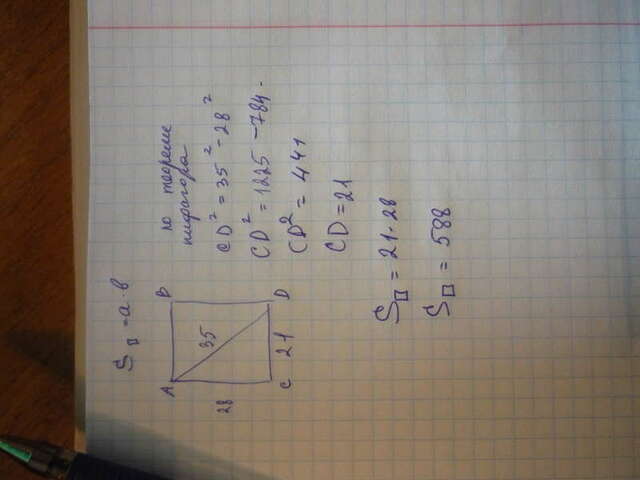 S▯ = a·b
A
B
35
28
C
21
D
по теореме
пифагора
CD² = 35² - 28²
CD² = 1225 - 784.
CD² = 441
CD = 21
S▯ = 21·28
S▯ = 588